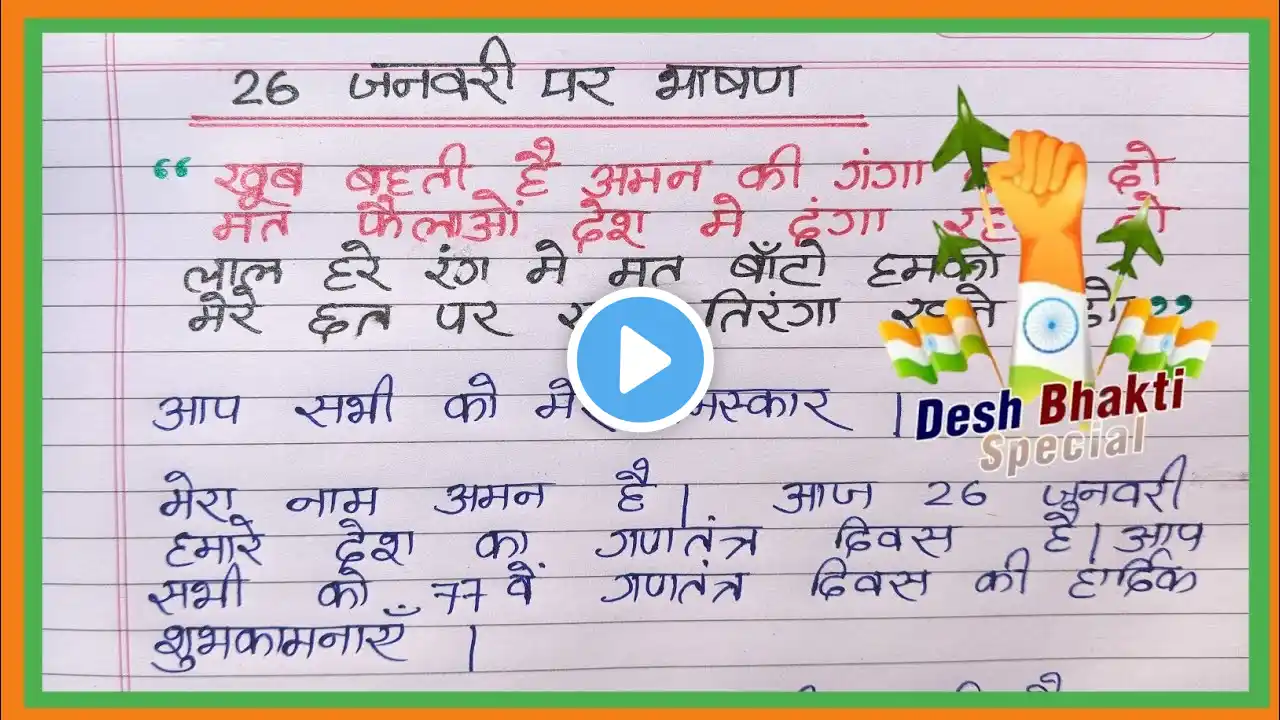 26 जनवरी पर भाषण
“ खूब बहती है अमन की गंगा दो
मत फैलाओं देश मे दंगा
लाल हरे रंग मे मत बाँटो हमको
मेरे छत पर तिरंगा ”
आप सभी को नमस्कार |
Desh Bhakti
Special
मेरा नाम अमन है | आज 26 जनवरी
हमारे देश का गणतंत्र दिवस है | आप
सभी को 77 वें गणतंत्र दिवस की हार्दिक
शुभकामनाएँ |